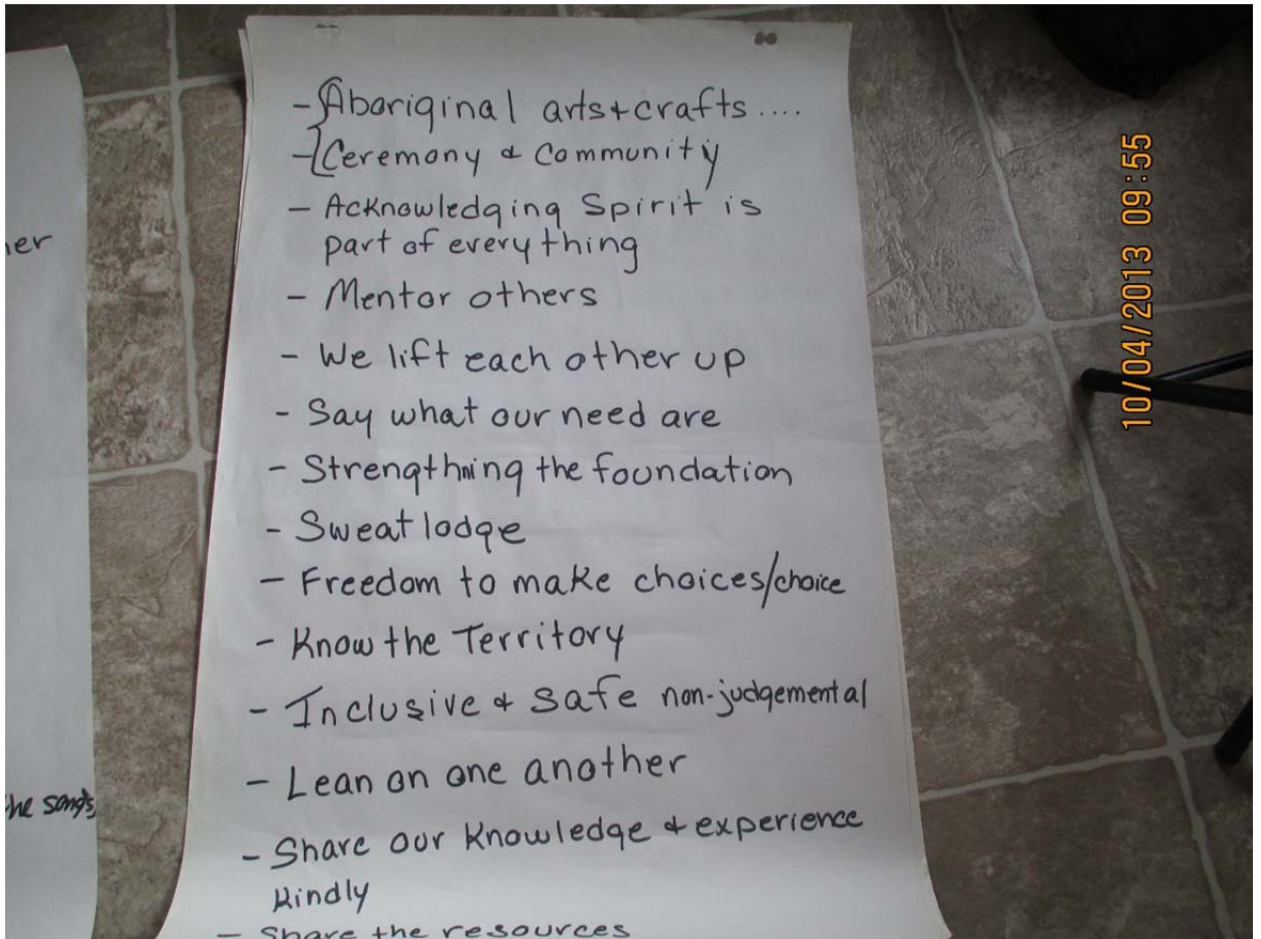 - Aboriginal arts+crafts....
- Ceremony & Community
- Acknowledging Spirit is
part of everything
- Mentor others
- We lift each other up
- Say what our need are
- Strengthning the foundation
- Sweat lodge
- Freedom to make choices/choice
- Know the Territory
- Inclusive & safe non-judgemental
- Lean on one another
- Share our Knowledge & experience
Kindly
- Share the resources
her
he songs
10/04/2013 09:55